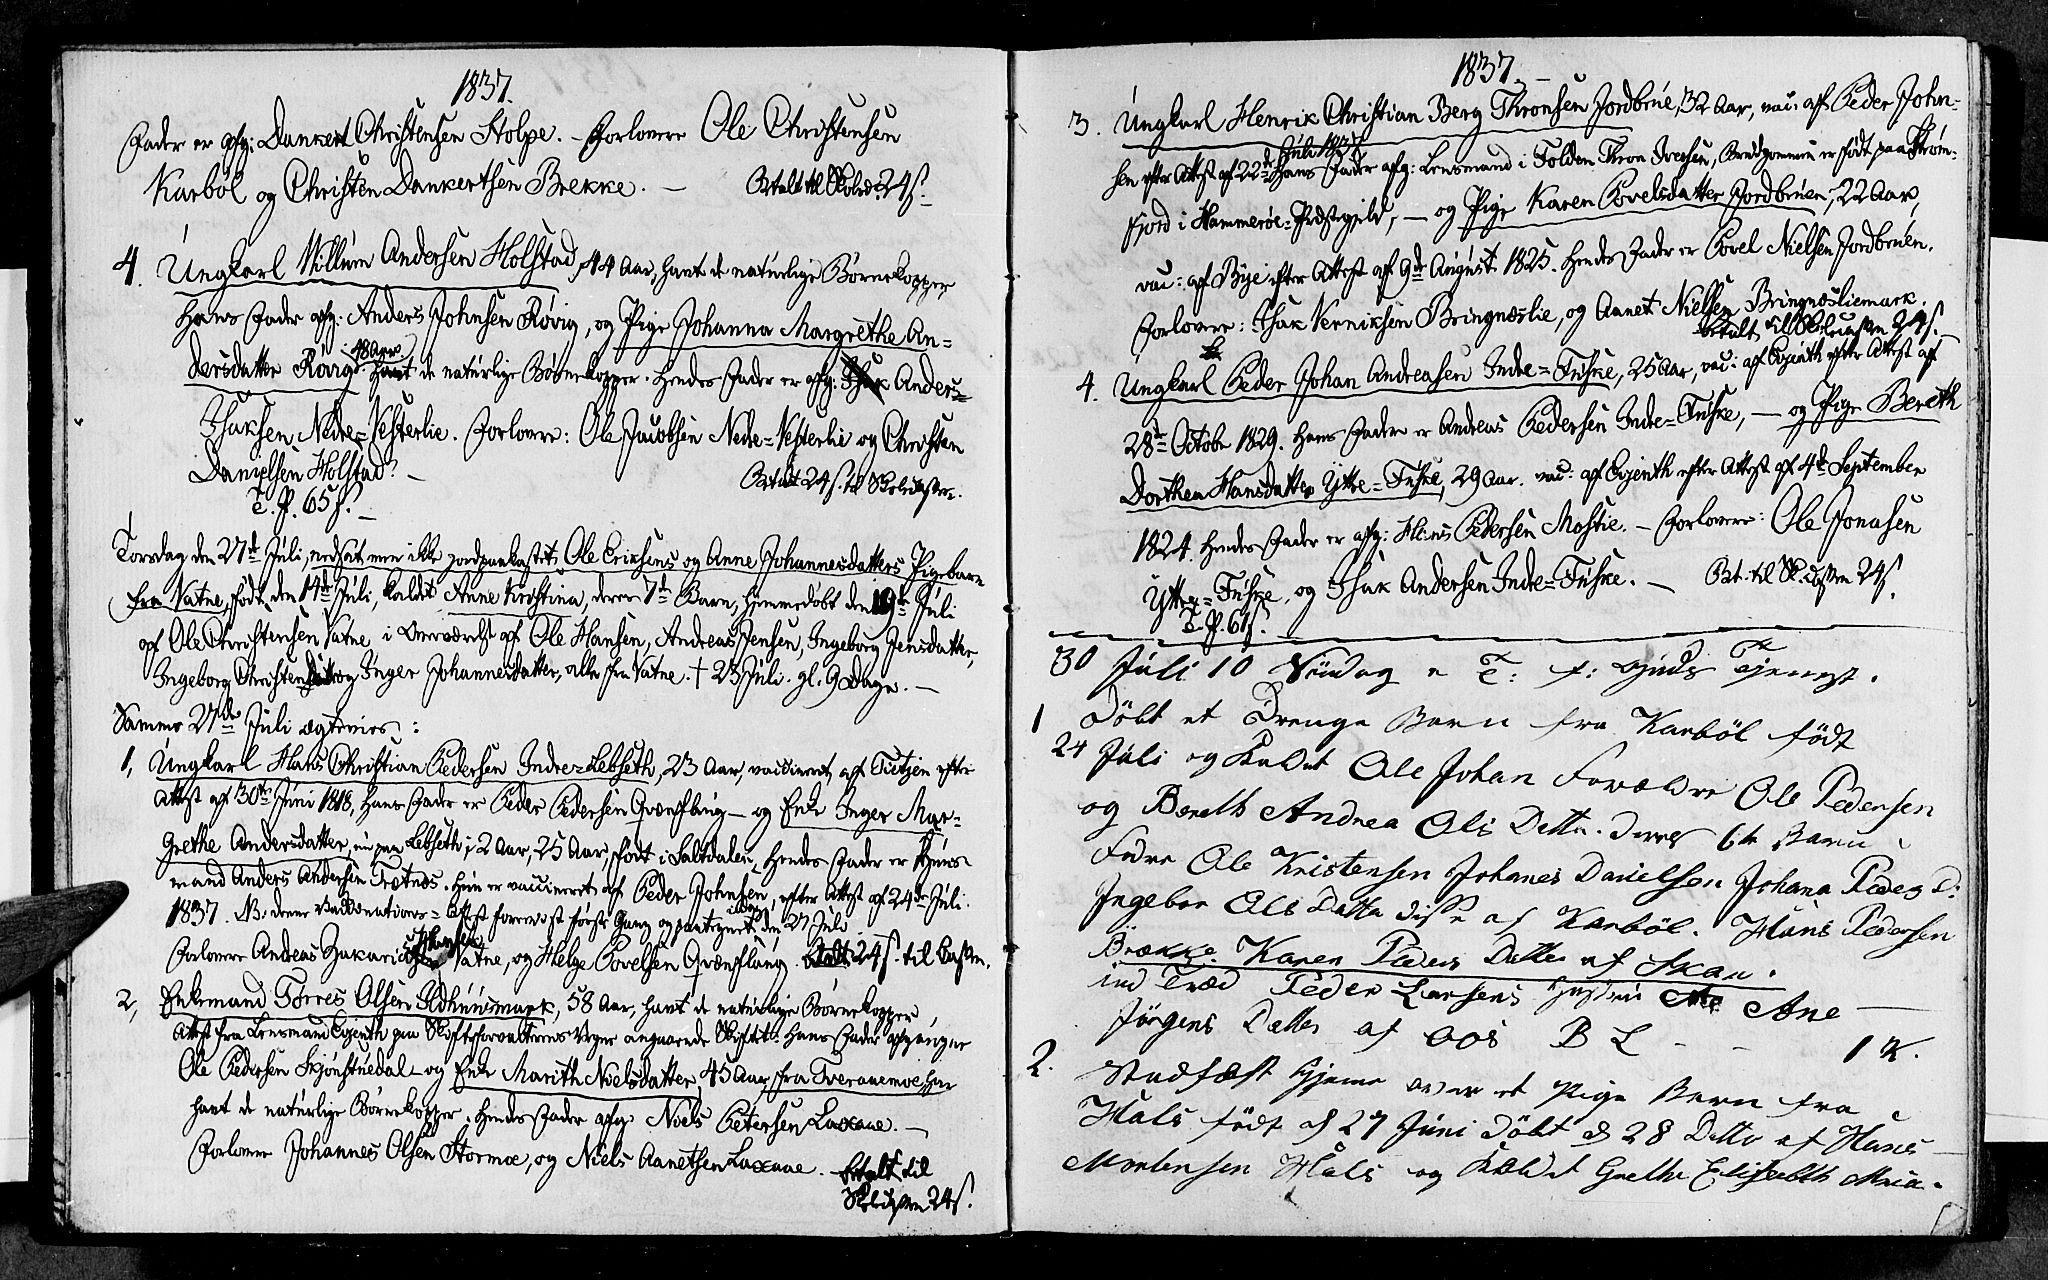 1837.
Fader er afg: Dankert Christensen Stolpe. – Forlovere Ole Christensen
Karböl og Christen Dankertsen Brekke. — Betalt til Skolec: 24 s.
4. Ungkarl Willum Andersen Holstad, 44 Aar, havt de naturlige Børnekopper
Hans Fader afg: Anders Johnsen Røvig, og Pige Johanna Margrethe An=
dersdatter Røvig 48 Aar. havt de naturlige Børnekopper. Hendes Fader er afg: Anders
Isaksen Nedre=Vesterlie. Forlovere: Ole Jacobsen Nedre=Vesterlie og Christen
Danielsen Holstad. – Betalt 24 s. til Skolekassen.
T. P. 65 s.
Torsdag den 27de Juli, nedsat men ikke jordpaakastet Ole Eriksens og Anne Johannesdatters Pigebarn
fra Vatne, født den 14de Juli, kaldet Anne Kirstina, deres 7de Barn, hjemmedøbt den 19de Juli
af Ole Christensen Vatne i Overværelse af Ole Hansen, Andreas Jensen, Ingeborg Jensdatter,
Ingeborg Christensdatter og Inger Johannesdatter, alle fra Vatne. † 23 Juli. gl. 9 Dage. —
Samme 27de Juli ægtevies:
1, Ungkarl Hans Christian Pedersen Indre=Lebseth, 23 Aar, vaccineret af Tietjen efter
Attest af 30te Juni 1818, Hans Fader er Peder Pedersen Grønflaug – og Enke Inger Mar=
grethe Andersdatter, nu paa Lebseth i 2 Aar, 25 Aar, født i Saltdalen, Hendes Fader er Huus=
mand Anders Andersen Trætnes. Hun er vaccineret af Peder Johnsen, efter Attest af 24de Juli
1837. NB: denne Vaccinations=Attest foreviist første Gang og paategnet den 27 Juli
Forlovere Andreas Zakariassen Vatne, og Helge Povelsen Grønflaug. Betalt 24 s. til Cassen.
2, Enkemand Torres Olsen Oldhuusmark, 58 Aar, havt de naturlige Børnekopper,
Attest fra Lensmand Ejenth paa Skifteforvalterens Vegne angaaende Skiftet. Hans Fader afgangne
Ole Pedersen Skjønstuedal – og Enke Marith Nielsdatter, 45 Aar, fra Tveraaemoe, har
havt de naturlige Børnekopper. Hendes Fader afg: Niels Petersen Laxaae. —
Forlovere Johannes Olsen Stormoe, og Niels Aanetsen Laxaae. Betalt til
Skolekassen 24 s.
1837. –
3. Ungkarl Henrik Christian Berg Thronsen Jordbrue, 32 Aar, vac: af Peder John=
sen efter Attest af 22de Juli 1837. Hans Fader afg: Lensmand i Folden Thron Iversen, Brudgommen er født paa Strøm=
fjord i Hammerøe=Præstegjeld, — og Pige Karen Povelsdatter Jordbruen, 22 Aar,
vac: af Bye efter Attest af 9de August 1825. Hendes Fader er Povel Nielsen Jordbruen.
Forlovere: Isak Verniksen Bringnæslie, og Aanet Nielsen Bringnæsliemark.
Betalt til Skolecassen 24 s.
4. Ungkarl Peder Johan Andreasen Indre=Fuske, 25 Aar, vac: af Ejenth efter Attest af
28de Octobr 1829. Hans Fader er Andreas Pedersen Indre=Fuske, — og Pige Bereth
Dorthea Hansdatter Ytre=Fuske, 29 Aar. vac: af Ejenth efter Attest af 4de September
1824. Hendes Fader er afg: Hans Pedersen Mostie. – Forlovere: Ole Jonasen
Yttre=Fuske, og Isak Andersen Indre=Fuske. – Bet: til Sk.Cassen 24 s.
T. P. 61 s.
30 Juli 10 Søndag e T: f: Guds Tjenest.
1 Döbt et Drenge Barn fra Karböl född
24 Juli og Kaldet Ole Johan Forældre Ole Pedersen
og Bereth Andrea Ols Datter. deres 6te Barn
Fadre Ole Kristensen Johanes Danielsen Johana Peders D:
Ingebor Ols Datter disse af Karböl. Hans Pedersen
Brække Karen Peders Datter af Skau.
ind Træd Peder Larsens Hustru Ane
Jörgens Datter af Aas B L – – 1 K.
2. Stadfæst hjeme over et Pige Barn fra
Hals födt d 27 Juni Döbt d 28 Ditto af Hans
Mortensen Hals og Kaldet Grethe Elisabeth Maria.